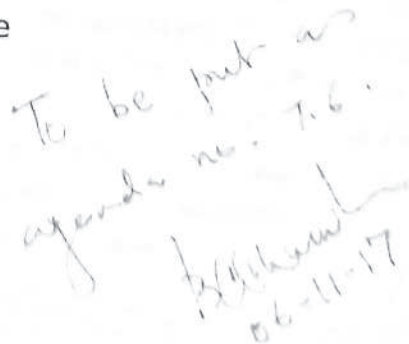 e
To be put as
agenda no. 7.6.
06-11-17